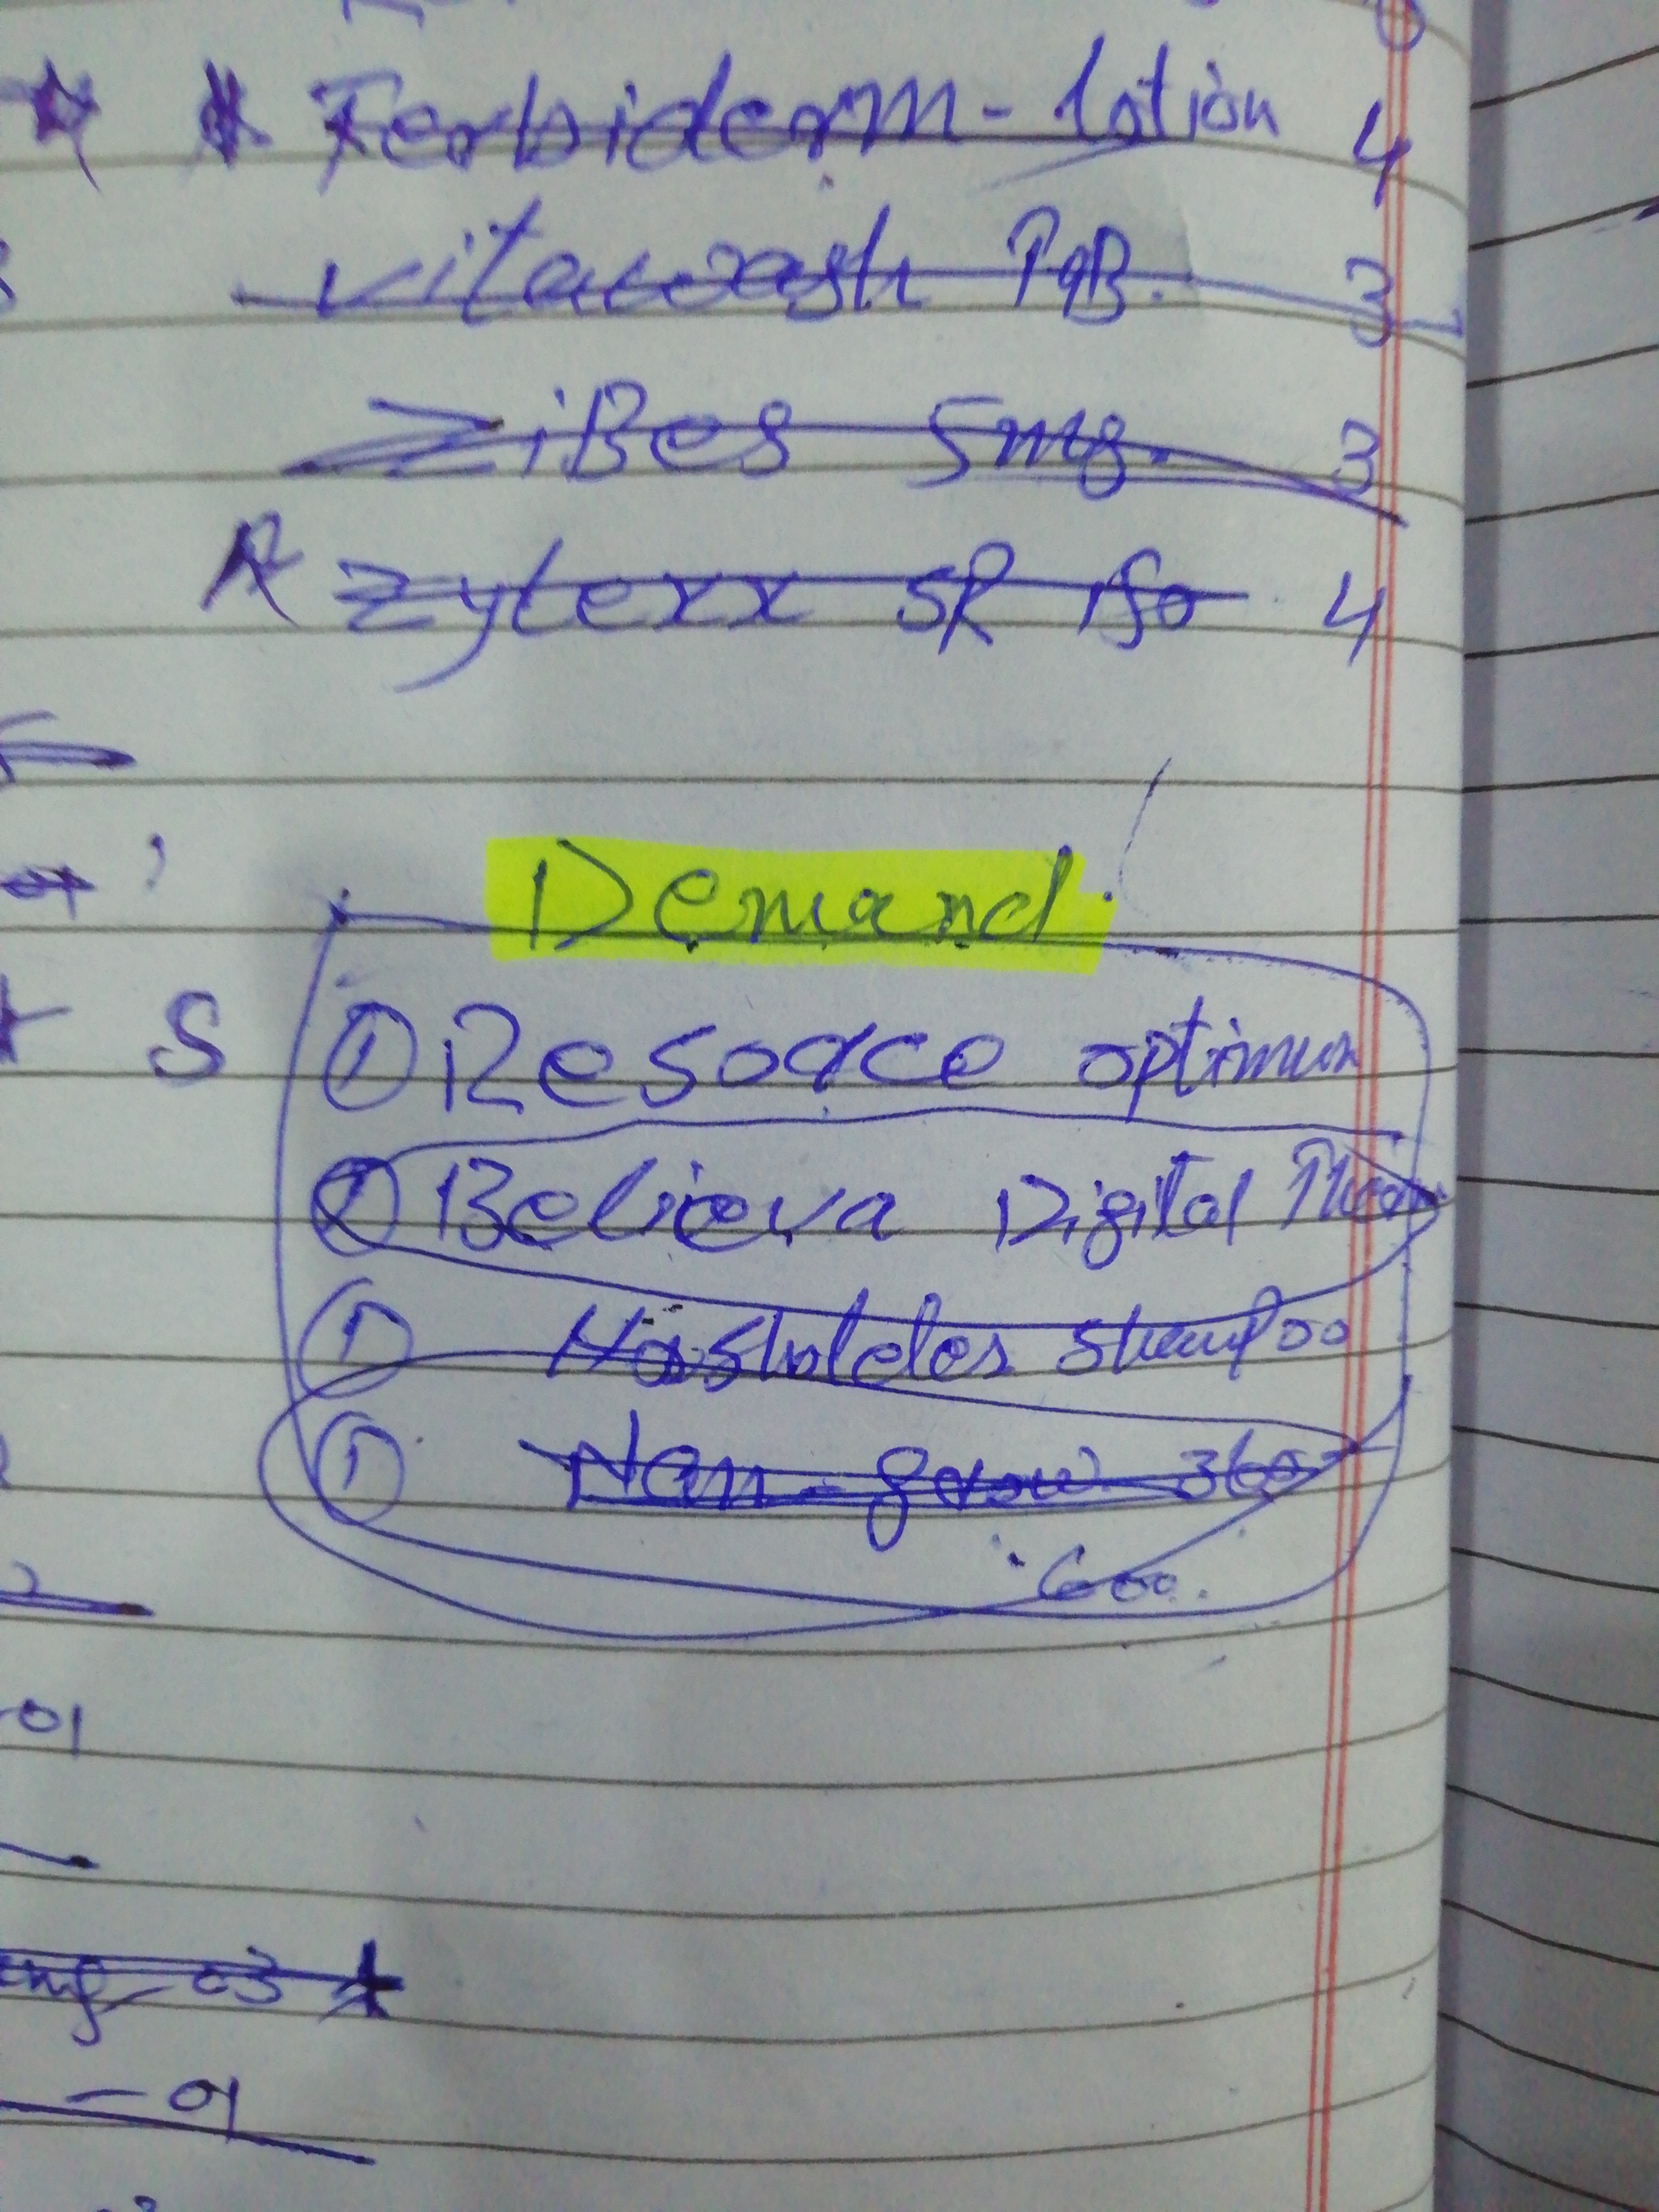 Ferbiderm - lotion 4
vitawash PqB. 3
ZiBes 5mg. 3
zytexx SR 150 4
Demand
S ① Resource optimum
① Believa Digital
① shampoo
① Nan - grow 360
600.
-01
-03
-01